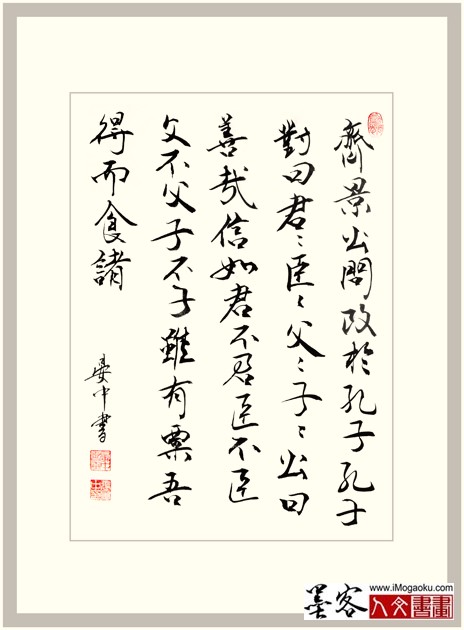 齊景公問政於孔子孔子
對曰君〻臣〻父〻子〻公曰
善哉信如君不君臣不臣
父不父子不子雖有粟吾
得而食諸
晏中書
www.iMogaoku.com
墨客 人文書畫